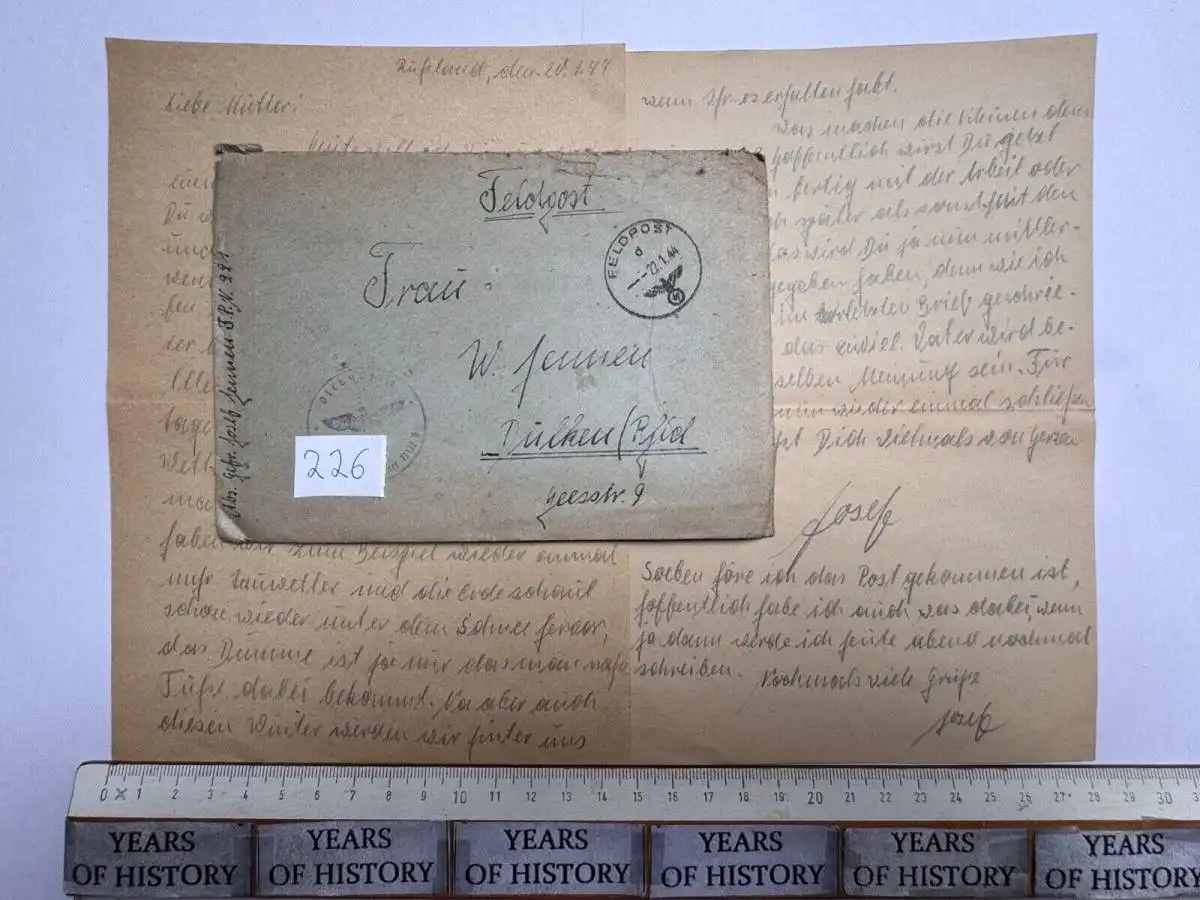 Rußland, den 20.1.44
Liebe Mutter!
ein
Du
und
wen
ben
ter
Alle
tage
Wett
ma
haben wir zum Beispiel wieder einmal
mehr Tauwetter und die Erde schaut
schon wieder unter dem Schnee hervor,
das Dumme ist ja nur das man nasse
Füße dabei bekommt. Na aber auch
diesen Winter werden wir hinter uns
wenn Ihr es erhalten habt.
Was machen die Kleinen denn
hoffentlich wirst Du jetzt
fertig mit der Arbeit oder
später als sonst. Mit den
das wird Du ja nun mittler-
gegeben haben, denn wie ich
im vorletzten Brief geschrie-
das zuviel. Vater wird be-
selben Meinung sein. Für
nun wieder einmal schließen
Dich vielmals von Herzen
Josef
Soeben höre ich das Post gekommen ist,
hoffentlich habe ich auch was dabei, wenn
ja dann werde ich heute abend nochmal
schreiben. Nochmals viele Grüße
Josef
Feldpost
FELDPOST
d
22.1.44
Frau
W. Jennen
Dülken/Rhld
Heesstr. 9
Abs. Gefr. Josef Jennen F.P.N.
226
0 1 2 3 4 5 6 7 8 9 10 11 12 13 14 15 16 17 18 19 20 21 22 23 24 25 26 27 28 29 30
YEARS OF HISTORY
YEARS OF HISTORY
YEARS OF HISTORY
YEARS OF HISTORY
YEARS OF HISTORY
YEARS OF HISTORY